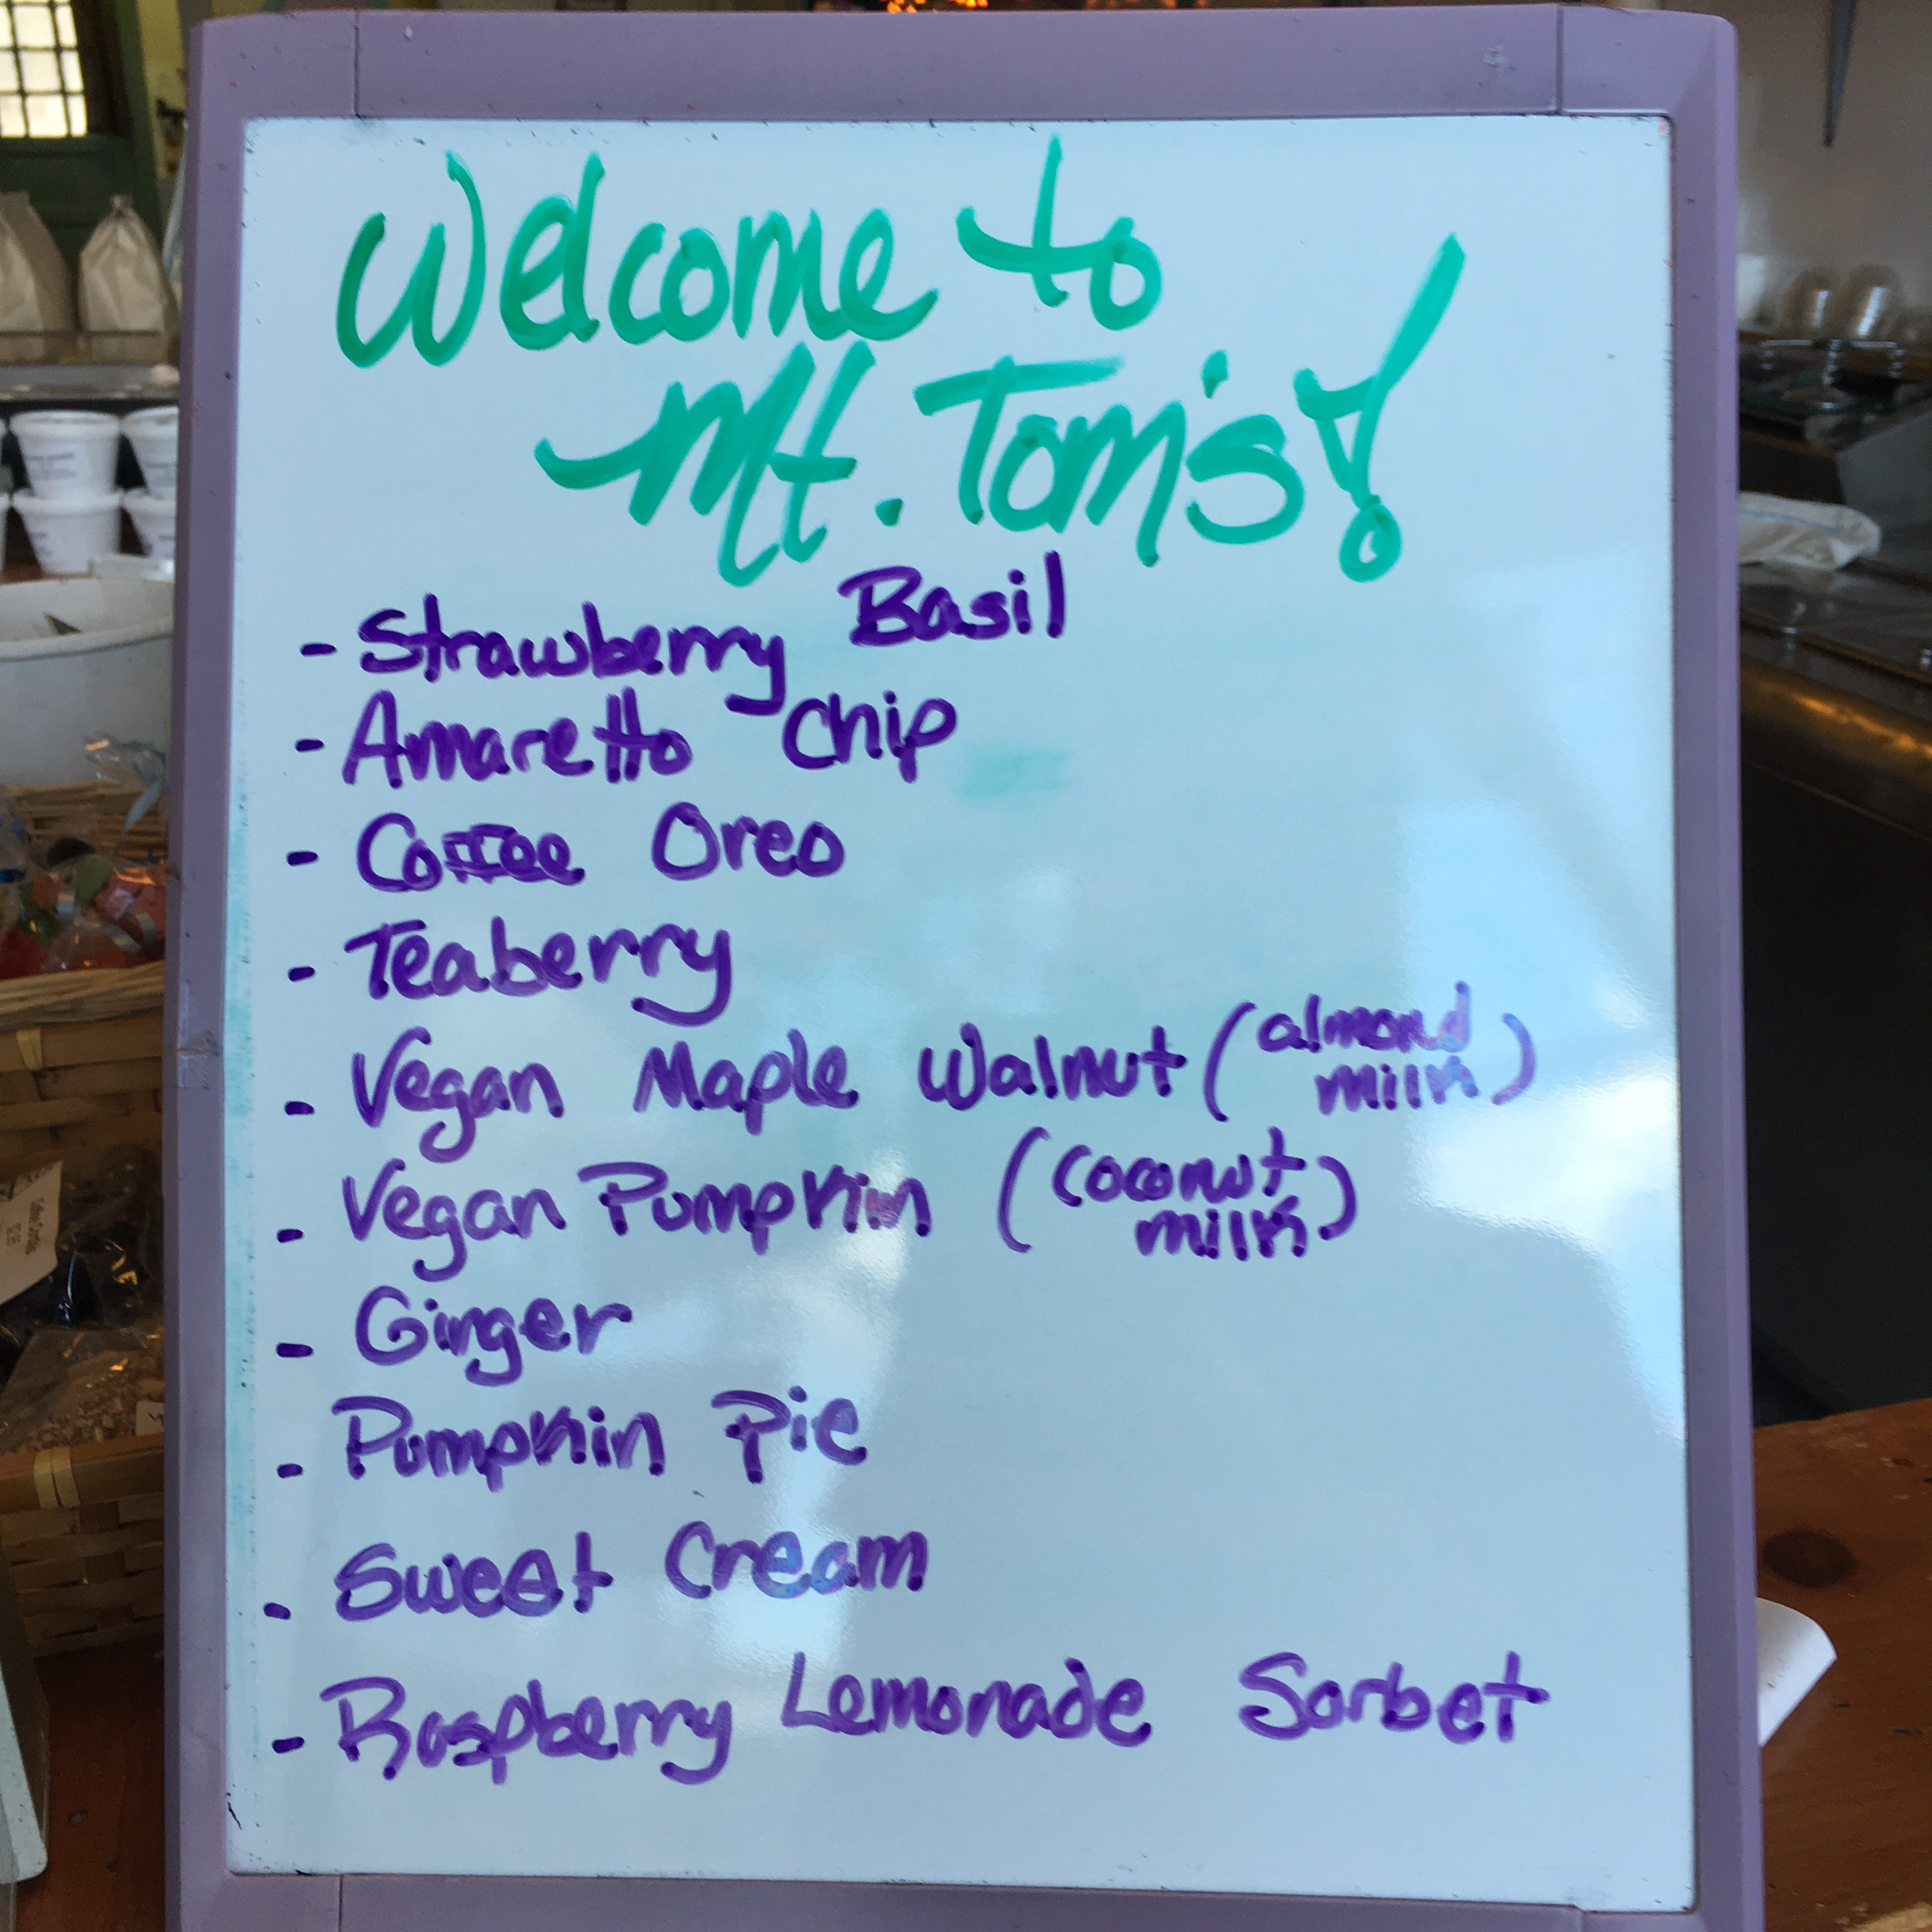 Welcome to
Mt. Tom's!
- Strawberry Basil
- Amaretto Chip
- Coffee Oreo
- Teaberry
- Vegan Maple Walnut (almond
milk)
- Vegan Pumpkin (coconut
milk)
- Ginger
- Pumpkin Pie
- Sweet Cream
- Raspberry Lemonade Sorbet